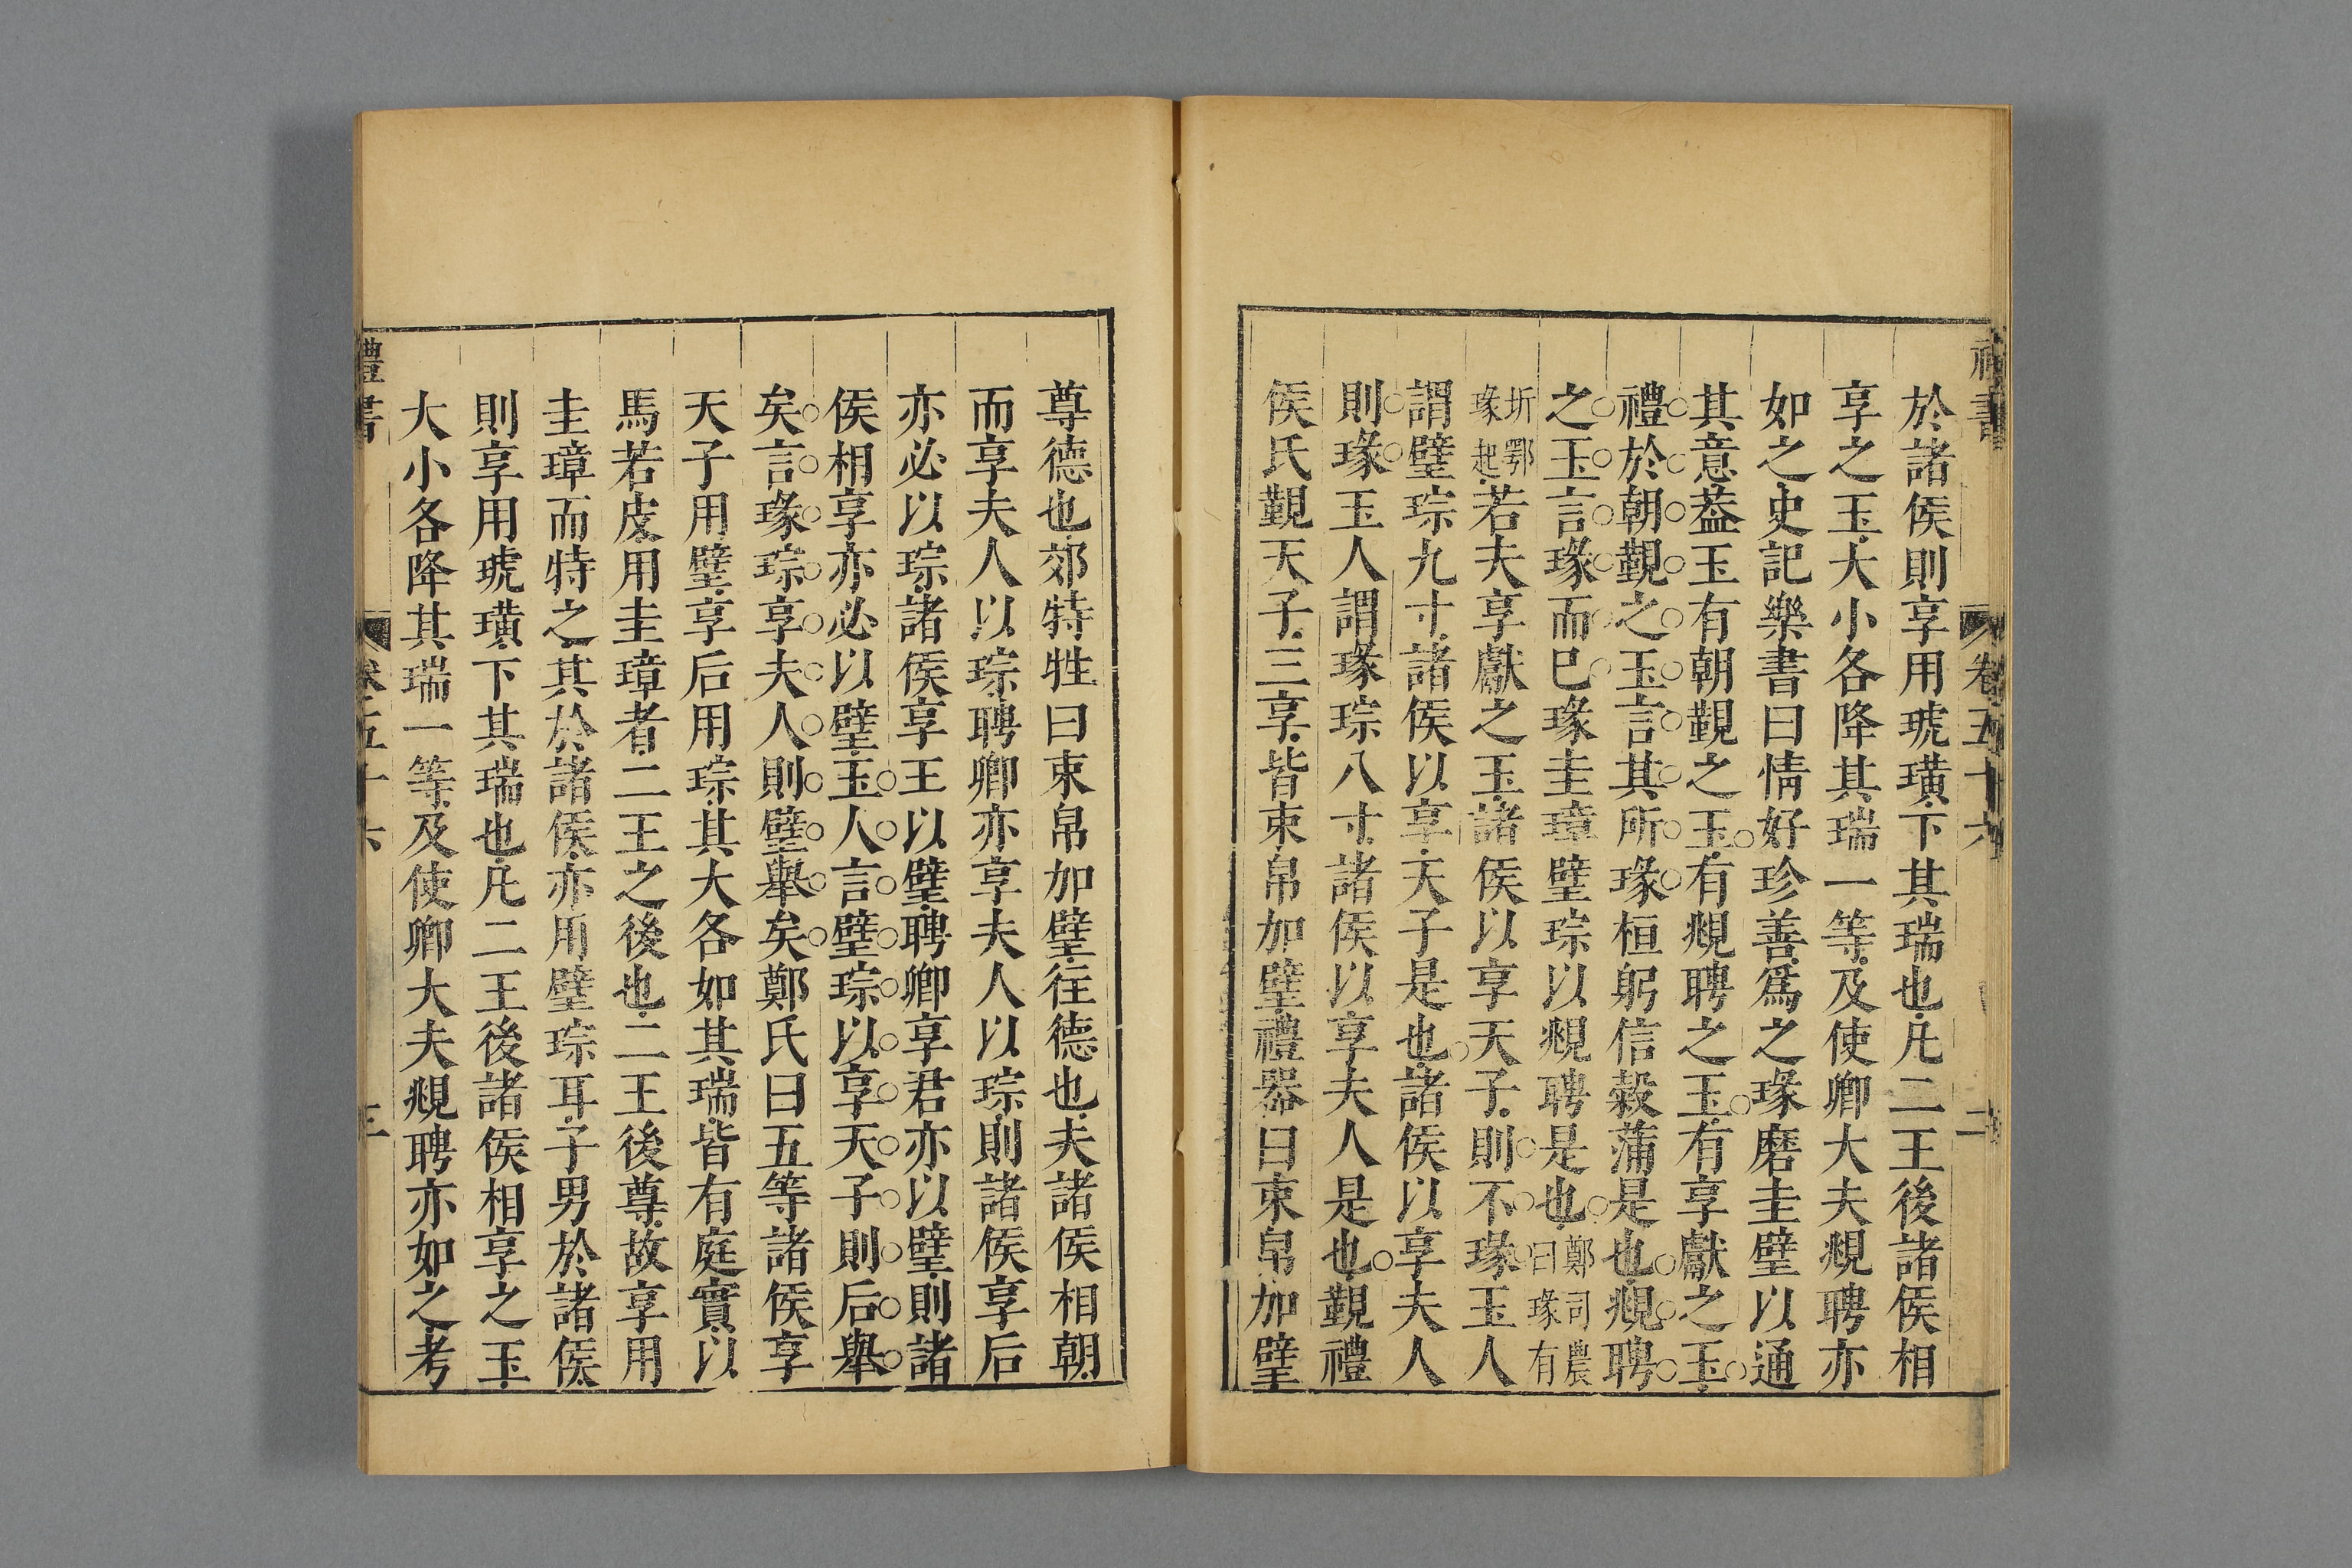 禮書 卷五十六 二
於諸侯則享用琥璜下其瑞也凡二王後諸侯相
享之玉大小各降其瑞一等及使卿大夫覜聘亦
如之史記樂書曰情好珍善爲之瑑磨圭璧以通
其意葢玉有朝覲之玉有覜聘之玉有享獻之玉
禮於朝覲之玉言其所瑑桓躬信榖蒲是也覜聘
之玉言瑑而巳瑑圭璋璧琮以覜聘是也鄭司農曰瑑有
圻鄂瑑起若夫享獻之玉諸侯以享天子則不瑑玉人
謂璧琮九寸諸侯以享天子是也諸侯以享夫人
則瑑玉人謂瑑琮八寸諸侯以享夫人是也覲禮
侯氏覲天子三享皆束帛加璧禮器曰束帛加璧
尊德也郊特牲曰束帛加璧往德也夫諸侯相朝
而享夫人以琮聘卿亦享夫人以琮則諸侯享后
亦必以琮諸侯享王以璧聘卿享君亦以璧則諸
侯相享亦必以璧玉人言璧琮以享天子則后舉
矣言瑑琮享夫人則璧舉矣鄭氏曰五等諸侯享
天子用璧享后用琮其大各如其瑞皆有庭實以
馬若皮用圭璋者二王之後也二王後尊故享用
圭璋而特之其於諸侯亦用璧琮耳子男於諸侯
則享用琥璜下其瑞也凡二王後諸侯相享之玉
大小各降其瑞一等及使卿大夫覜聘亦如之考
禮書 卷五十六 三